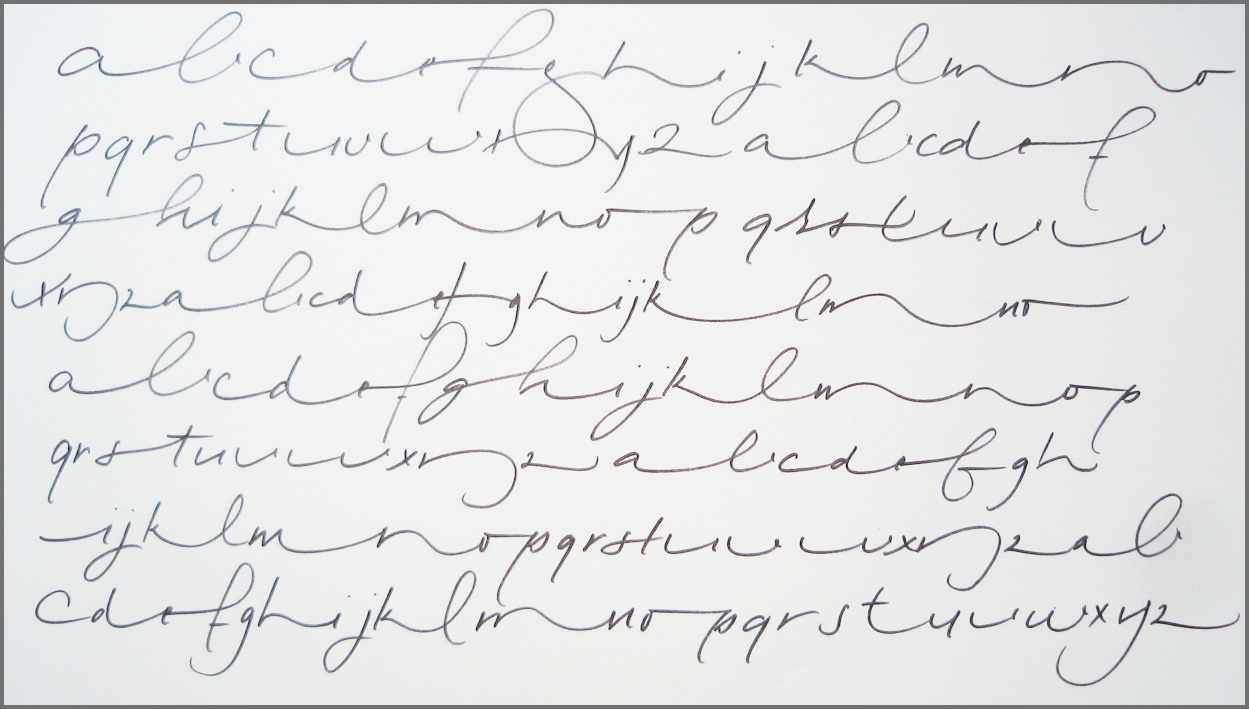 abcdefghijklmno
pqrstuvwxyz abcdef
ghijklmnop qrstuvw
xyzabcdefghijklmno
abcdefghijklmnop
qrstuvwxyz abcdefgh
ijklmnopqrstuvwxyzab
cdefghijklmnopqrstuvwxyz